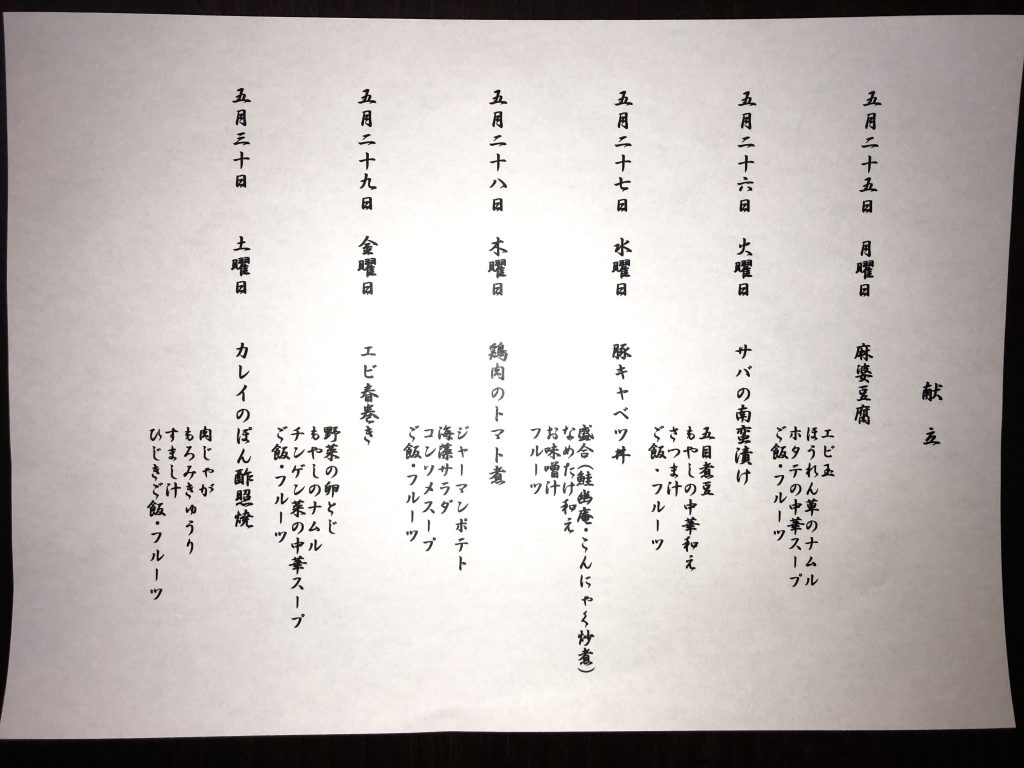 献立
五月二十五日 月曜日 麻婆豆腐
エビ玉
ほうれん草のナムル
ホタテの中華スープ
ご飯・フルーツ
五月二十六日 火曜日 サバの南蛮漬け
五目煮豆
もやしの中華和え
さつま汁
ご飯・フルーツ
五月二十七日 水曜日 豚キャベツ丼
盛合(鮭幽庵・こんにゃく炒煮)
なめたけ和え
お味噌汁
フルーツ
五月二十八日 木曜日 鶏肉のトマト煮
ジャーマンポテト
海藻サラダ
コンソメスープ
ご飯・フルーツ
五月二十九日 金曜日 エビ春巻き
野菜の卵とじ
もやしのナムル
チンゲン菜の中華スープ
ご飯・フルーツ
五月三十日 土曜日 カレイのぽん酢照焼
肉じゃが
もろみきゅうり
すまし汁
ひじきご飯・フルーツ